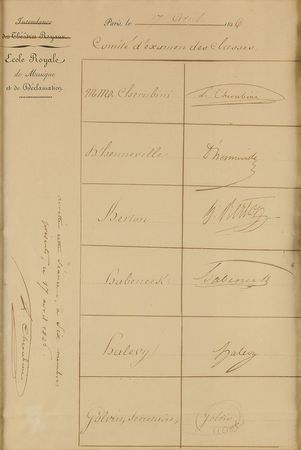 Intendance
des Théâtres Royaux
Ecole Royale
de Musique
et de Déclamation.
Paris, le 17 avril 1826
Comité d'examen des classes.
MMrs. Cherubini
L. Cherubini
D'henneville
Berton
H. Berton
Habeneck
Habeneck
halevy
halevy
arrêté cette séance, à six membres
présents, le 17 avril 1826
L. Cherubini